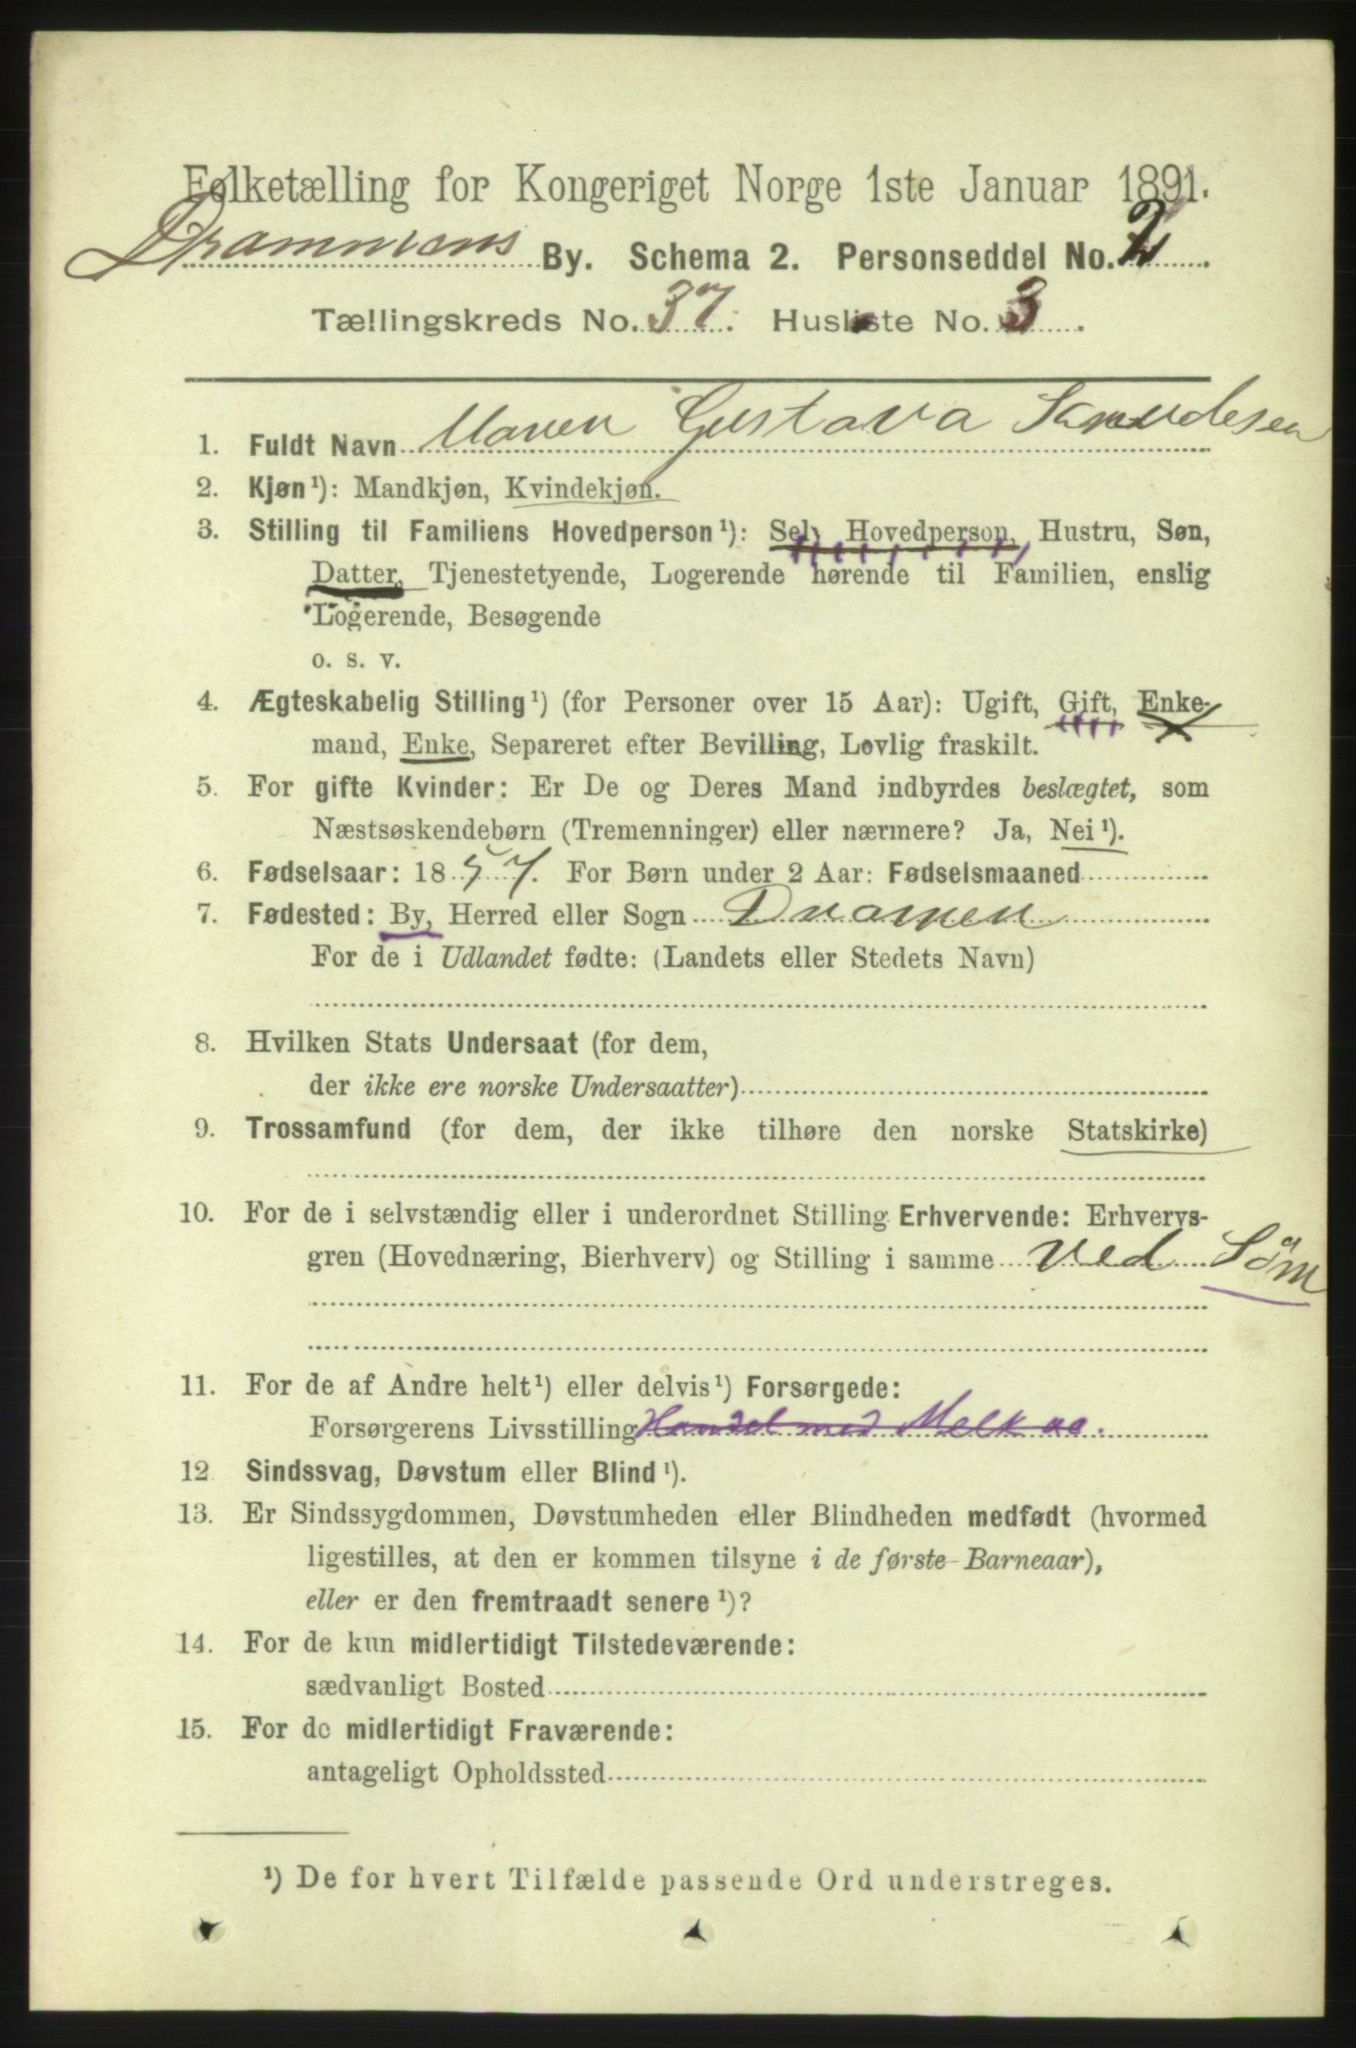 Folketælling for Kongeriget Norge 1ste Januar 1891.
Drammens By. Schema 2. Personseddel No. 2
Tællingskreds No. 37. Husliste No. 3.
1. Fuldt Navn Maren Gustava
2. Kjøn ¹): Mandkjøn, Kvindekjøn.
3. Stilling til Familiens Hovedperson ¹): Selv Hovedperson, Hustru, Søn,
Datter, Tjenestetyende, Logerende hørende til Familien, enslig
Logerende, Besøgende
o. s. v.
4. Ægteskabelig Stilling ¹) (for Personer over 15 Aar): Ugift, Gift, Enke-
mand, Enke, Separeret efter Bevilling, Lovlig fraskilt.
5. For gifte Kvinder: Er De og Deres Mand indbyrdes beslægtet, som
Næstsøskendebørn (Tremenninger) eller nærmere? Ja, Nei ¹).
6. Fødselsaar: 1857. For Børn under 2 Aar: Fødselsmaaned
7. Fødested: By, Herred eller Sogn Dramen
For de i Udlandet fødte: (Landets eller Stedets Navn)
8. Hvilken Stats Undersaat (for dem,
der ikke ere norske Undersaatter)
9. Trossamfund (for dem, der ikke tilhøre den norske Statskirke)
10. For de i selvstændig eller i underordnet Stilling Erhvervende: Erhvervs-
gren (Hovednæring, Bierhverv) og Stilling i samme ved Söm
11. For de af Andre helt ¹) eller delvis ¹) Forsørgede:
Forsørgerens Livsstilling Handel med Melk oa.
12 Sindssvag, Døvstum eller Blind ¹).
13. Er Sindssygdommen, Døvstumheden eller Blindheden medfødt (hvormed
ligestilles, at den er kommen tilsyne i de første Barneaar),
eller er den fremtraadt senere ¹)?
14. For de kun midlertidigt Tilstedeværende:
sædvanligt Bosted
15. For de midlertidigt Fraværende:
antageligt Opholdssted
¹) De for hvert Tilfælde passende Ord understreges.